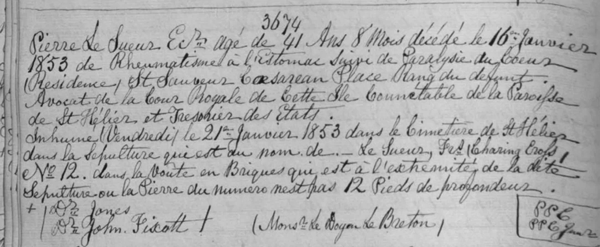 3674
Pierre Le Sueur Ecr. agé de 41 Ans 8 Mois décédé le 16me Janvier
1853 de Rheumatisme à l'Estomac Suivi de Paralysie du Coeur
(Residence) St. Sauveur Caesarean Place Rang du defunt.
Avocat de la Cour Royale de Cette Ile Connetable de la Paroisse
de St Helier et Tresorier des Etats.
Inhumé (Vendredi) le 21me Janvier 1853 dans le Cimetiere de St Helier
dans la Sepulture qui est du nom de. - Le Sueur, (Charing Cross)
No 12. dans la Voute en Briques qui est à l'extremité de la dite
Sepulture ou la Pierre du numero n'est pas 12 Pieds de profondeur.
+ / Dr. Jones
Dr. John. Fixott / (Monsr. Le Doyen Le Breton)
PPC
PPC